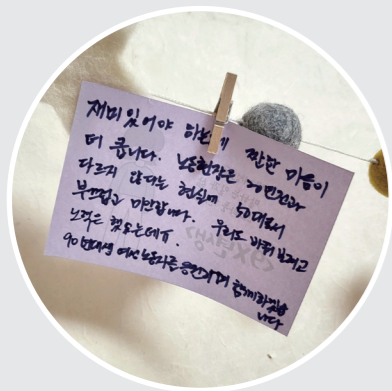 재미있어야 하는데 짠한 마음이
더 큽니다. 노동현장은 20년전과
다르지 않다는 현실에 50대로서
부끄럽고 미안합니다. 우리도 바꿔보려고
노력은 했는데
90년대생 여성노동자를 응원하며 함께하겠습
니다